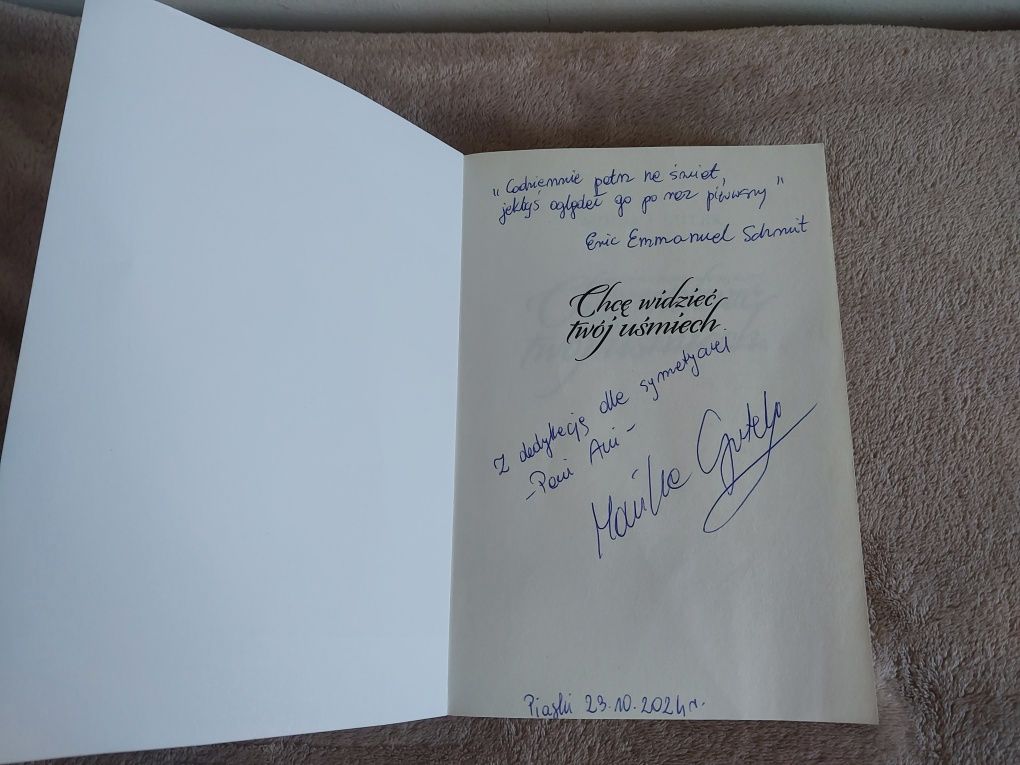 "Codziennie patrz na świat,
jakbyś oglądał go po raz pierwszy"
Eric Emmanuel Schmit
Chcę widzieć
twój uśmiech
Z dedykacją dla sympatycznej
- Pani Ani -
Piaski 23.10.2024 r.